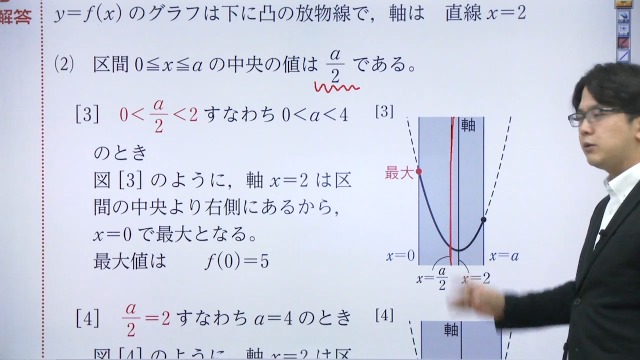 解答
y=f(x) のグラフは下に凸の放物線で，軸は 直線 x=2
(2) 区間 0≦x≦a の中央の値は a/2 である。
[3] 0<a/2<2 すなわち 0<a<4
のとき
図 [3] のように，軸 x=2 は区
間の中央より右側にあるから，
x=0 で最大となる。
最大値は f(0)=5
[3]
軸
最大
x=0
x=a
x=a/2
x=2
[4] a/2=2 すなわち a=4 のとき
図 [4] のように，軸 x=2 は区
[4]
軸